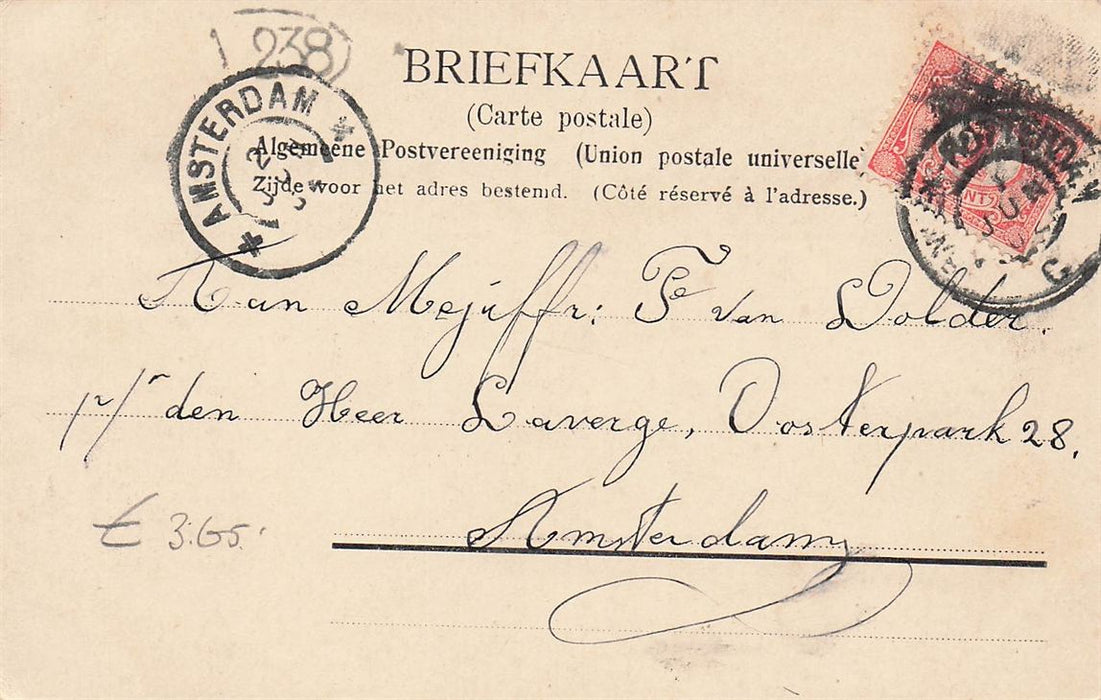 238
BRIEFKAART
(Carte postale)
Algemeene Postvereeniging (Union postale universelle
Zijde voor het adres bestemd. (Côté réservé à l'adresse.)
AMSTERDAM
Aan Mejuffr: F van Dolder.
p/r den Heer Laverge, Oosterpark 28.
Amsterdam
€ 3.65.